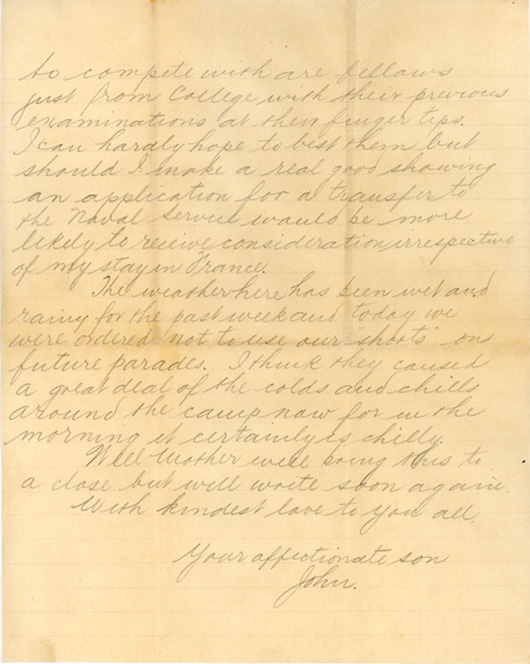 to compete with are fellows
just from College with their previous
examinations at their finger tips.
I can hardly hope to best them but
should I make a real good showing
an application for a transfer to
the Naval Service would be more
likely to receive consideration irrespective
of my stay in France.
The weather here has been wet and
rainy for the past week and today we
were ordered not to use our "shorts" on
future parades. I think they caused
a great deal of the colds and chills
around the camp now for in the
morning it certainly is chilly.
Well Mother will bring this to
a close but will write soon again.
With kindest love to you all.
Your affectionate son
John.